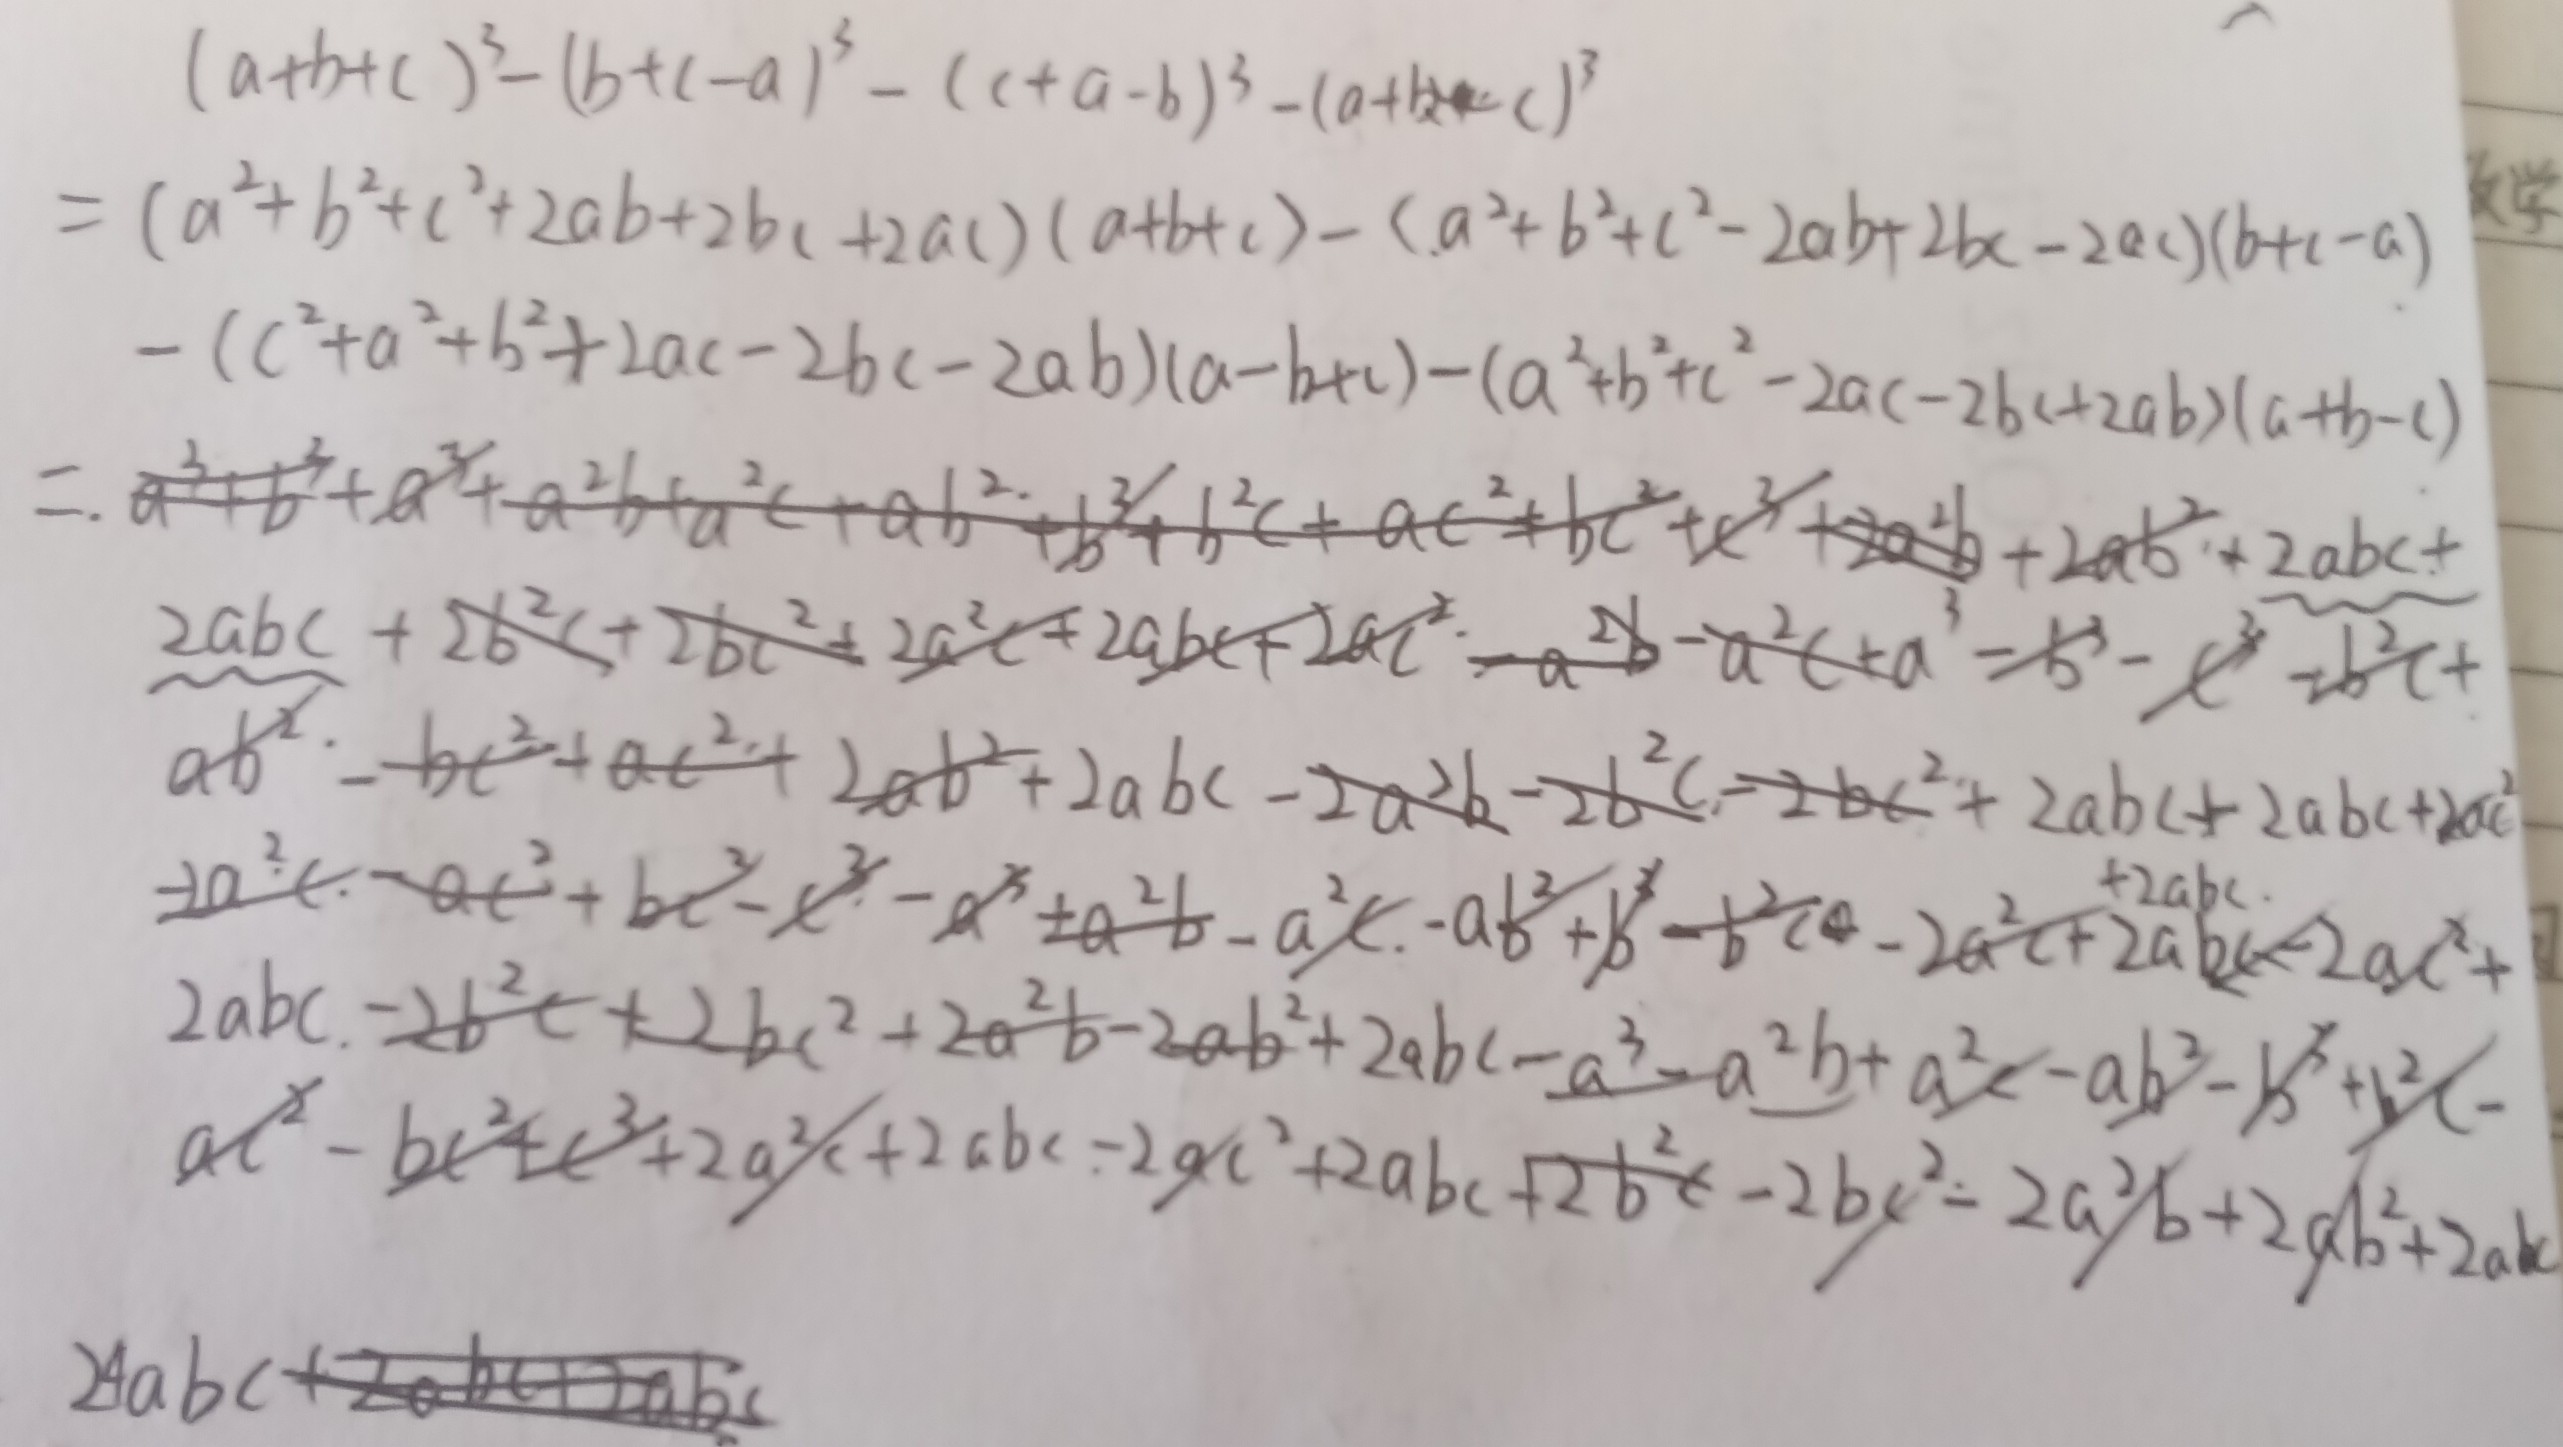 (a+b+c)³-(b+c-a)³-(c+a-b)³-(a+b-c)³
=(a²+b²+c²+2ab+2bc+2ac)(a+b+c)-(a²+b²+c²-2ab+2bc-2ac)(b+c-a)
-(c²+a²+b²+2ac-2bc-2ab)(a-b+c)-(a²+b²+c²-2ac-2bc+2ab)(a+b-c)
=a³+b³+a³+a²b+a²c+ab²+b³+b²c+ac²+bc²+c³+2a²b+2ab²+2abc+
2abc+2b²c+2bc²+2a²c+2abc+2ac²-a²b-a²c+a³-b³-c³-b²c+
ab²-bc²+ac²+2ab²+2abc-2a²b-2b²c-2bc²+2abc+2abc+2ac²
-2a²c-ac²+bc²-c³-a³+a²b-a²c-ab²+b³-b²c-2a²c+2abc-2ac²+
+2abc
2abc-2b²c+2bc²+2a²b-2ab²+2abc-a³-a²b+a²c-ab²-b³+b²c-
ac²-bc²+c³+2a²c+2abc-2ac²+2abc+2b²c-2bc²-2a²b+2ab²+2abc
24abc+2abc+2abc
数学